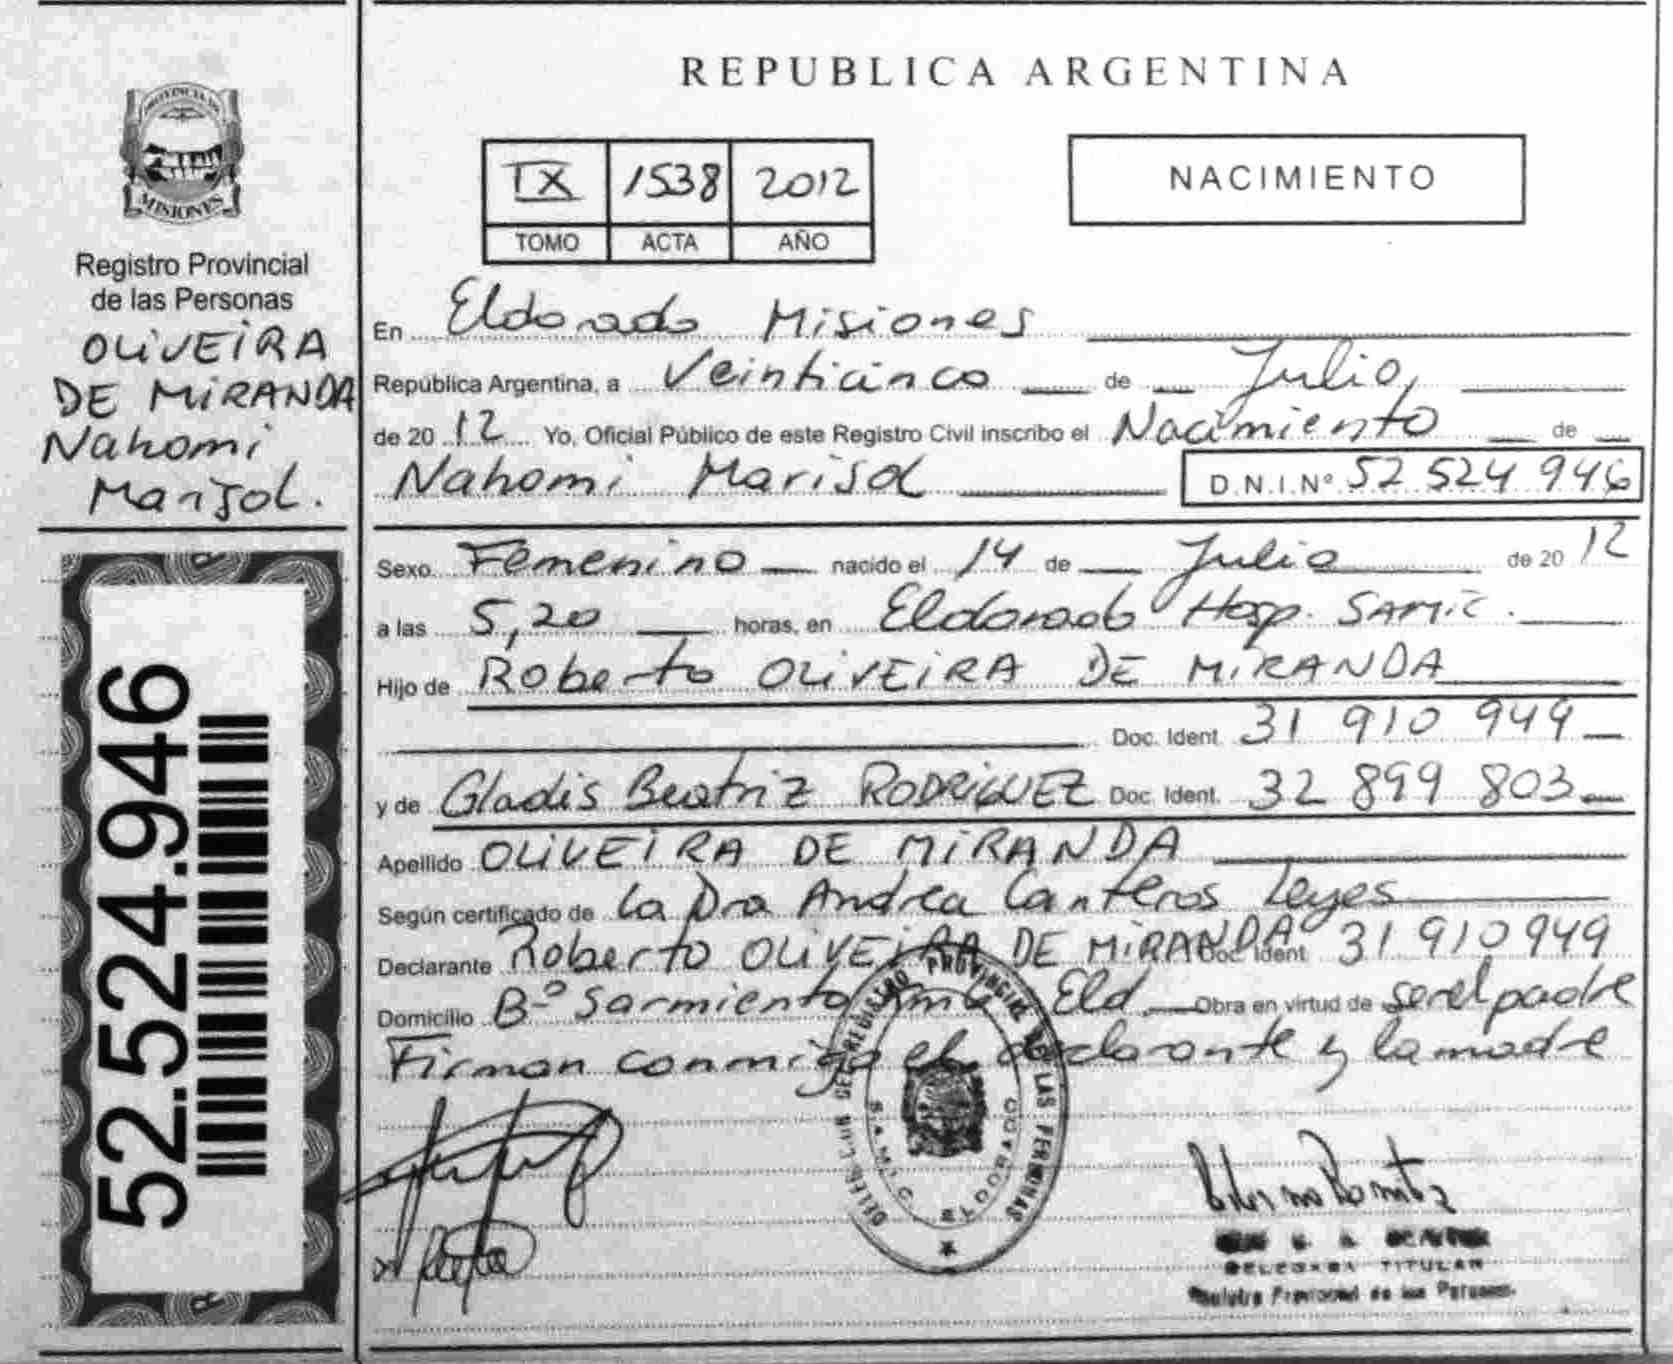 REPUBLICA ARGENTINA
PROVINCIA DE
MISIONES
Registro Provincial
de las Personas
OLIVEIRA
DE MIRANDA
Nahomi
Marisol.
52.524.946
IX 1538 2012
TOMO ACTA AÑO
NACIMIENTO
En Eldorado Misiones
República Argentina, a Veinticinco de Julio,
de 2012 Yo, Oficial Público de este Registro Civil inscribo el Nacimiento de
Nahomi Marisol D.N.I.Nº 52 524 946
Sexo Femenino nacido el 14 de Julio de 2012
a las 5,20 horas, en Eldorado Hosp. SAMIC.
Hijo de Roberto OLIVEIRA DE MIRANDA
Doc. Ident. 31 910 949
y de Gladis Beatriz RODRIGUEZ Doc. Ident. 32 899 803
Apellido OLIVEIRA DE MIRANDA
Según certificado de la Dra Andrea Canteros Leyes
Declarante Roberto OLIVEIRA DE MIRANDA Doc. Ident 31 910 949
Domicilio Bº Sarmiento Eld. Obra en virtud de ser el padre
Firman conmigo el declarante y la madre
REGISTRO PROVINCIAL DE LAS PERSONAS
S.A.M.I.C. ELDORADO
DELEGADA TITULAR
Registro Provincial de las Personas